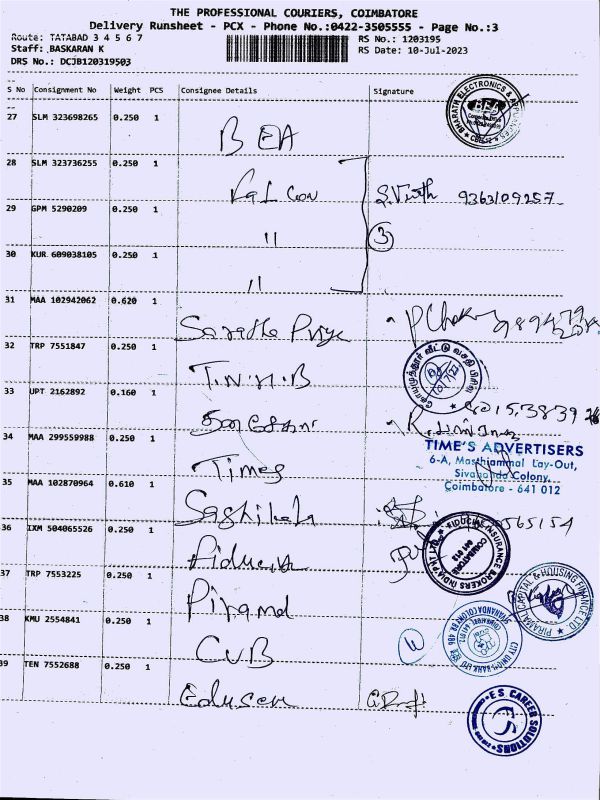 THE PROFESSIONAL COURIERS, COIMBATORE
Delivery Runsheet - PCX - Phone No.:0422-3505555 - Page No.:3
Route: TATABAD 3 4 5 6 7
RS No.: 1203195
Staff: BASKARAN K
RS Date: 10-Jul-2023
DRS No.: DCJB120319503
S No Consignment No Weight PCS Consignee Details Signature
27 SLM 323698265 0.250 1 BEA
BHARATH ELECTRONICS & APPLIANCES BEA
28 SLM 323736255 0.250 1 9363109257
29 GPM 5290209 0.250 1 " 3
30 KUR 609038105 0.250 1 "
31 MAA 102942062 0.620 1 Saratha Priya
32 TRP 7551847 0.250 1 T.N.H.B
33 UPT 2162892 0.160 1
34 MAA 299559988 0.250 1 Times
TIME'S ADVERTISERS
6-A, Masthiammal Lay-Out,
Sivananda Colony,
Coimbatore - 641 012
35 MAA 102870964 0.610 1 Sashikala
36 IXM 504065526 0.250 1
FIDUCIAE INSURANCE BROKERS INDIA PVT LTD COIMBATORE 641 012
37 TRP 7553225 0.250 1 Piramal
PIRAMAL CAPITAL & HOUSING FINANCE LTD
38 KMU 2554841 0.250 1 CUB
CITY UNION BANK LTD SIVANANDA COLONY BR. 486
39 TEN 7552688 0.250 1
E S CAREER SOLUTIONS